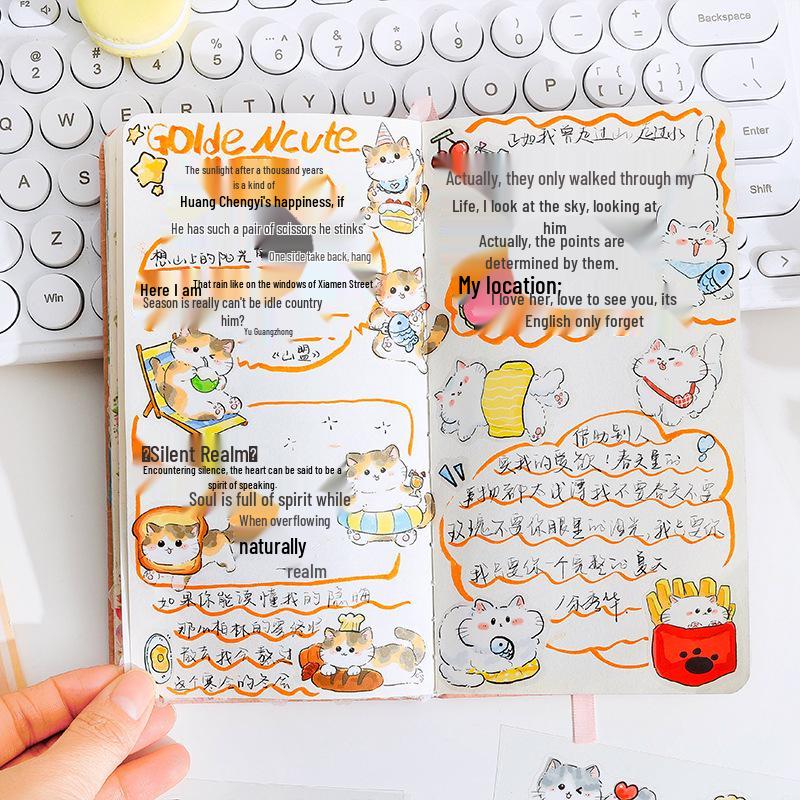 GOlde Ncute
The sunlight after a thousand years
is a kind of
Huang Chengyi's happiness, if
He has such a pair of scissors he stinks
想山上的阳光
One side take back, hang
Here I am
That rain like on the windows of Xiamen Street
Season is really can't be idle country
him?
Yu Guangzhong
《山盟》
Silent Realm
Encountering silence, the heart can be said to be a
spirit of speaking.
Soul is full of spirit while
When overflowing
naturally
realm
如果你能读懂我的隐晦
那么柏林的雾终将
散去我会熬过
这个寒冷的冬天
正如我曾走过山 走过水
Actually, they only walked through my
Life, I look at the sky, looking at
him
Actually, the points are
determined by them.
My location;
I love her, love to see you, its
English only forget
借助别人
实我的爱欲！春天里的
事物都太浅薄我不要春天不要
玫瑰不要你眼里的阳光，我只要你
我只要你一个完整的夏天
/余秀华
F2
@
2
#
3
$
4
%
5
^
6
&
7
*
8
(
9
)
0
_
-
+
=
Backspace
Q
W
E
R
T
Y
U
I
O
P
{
[
}
]
\
Enter
Shift
A
Z
Win